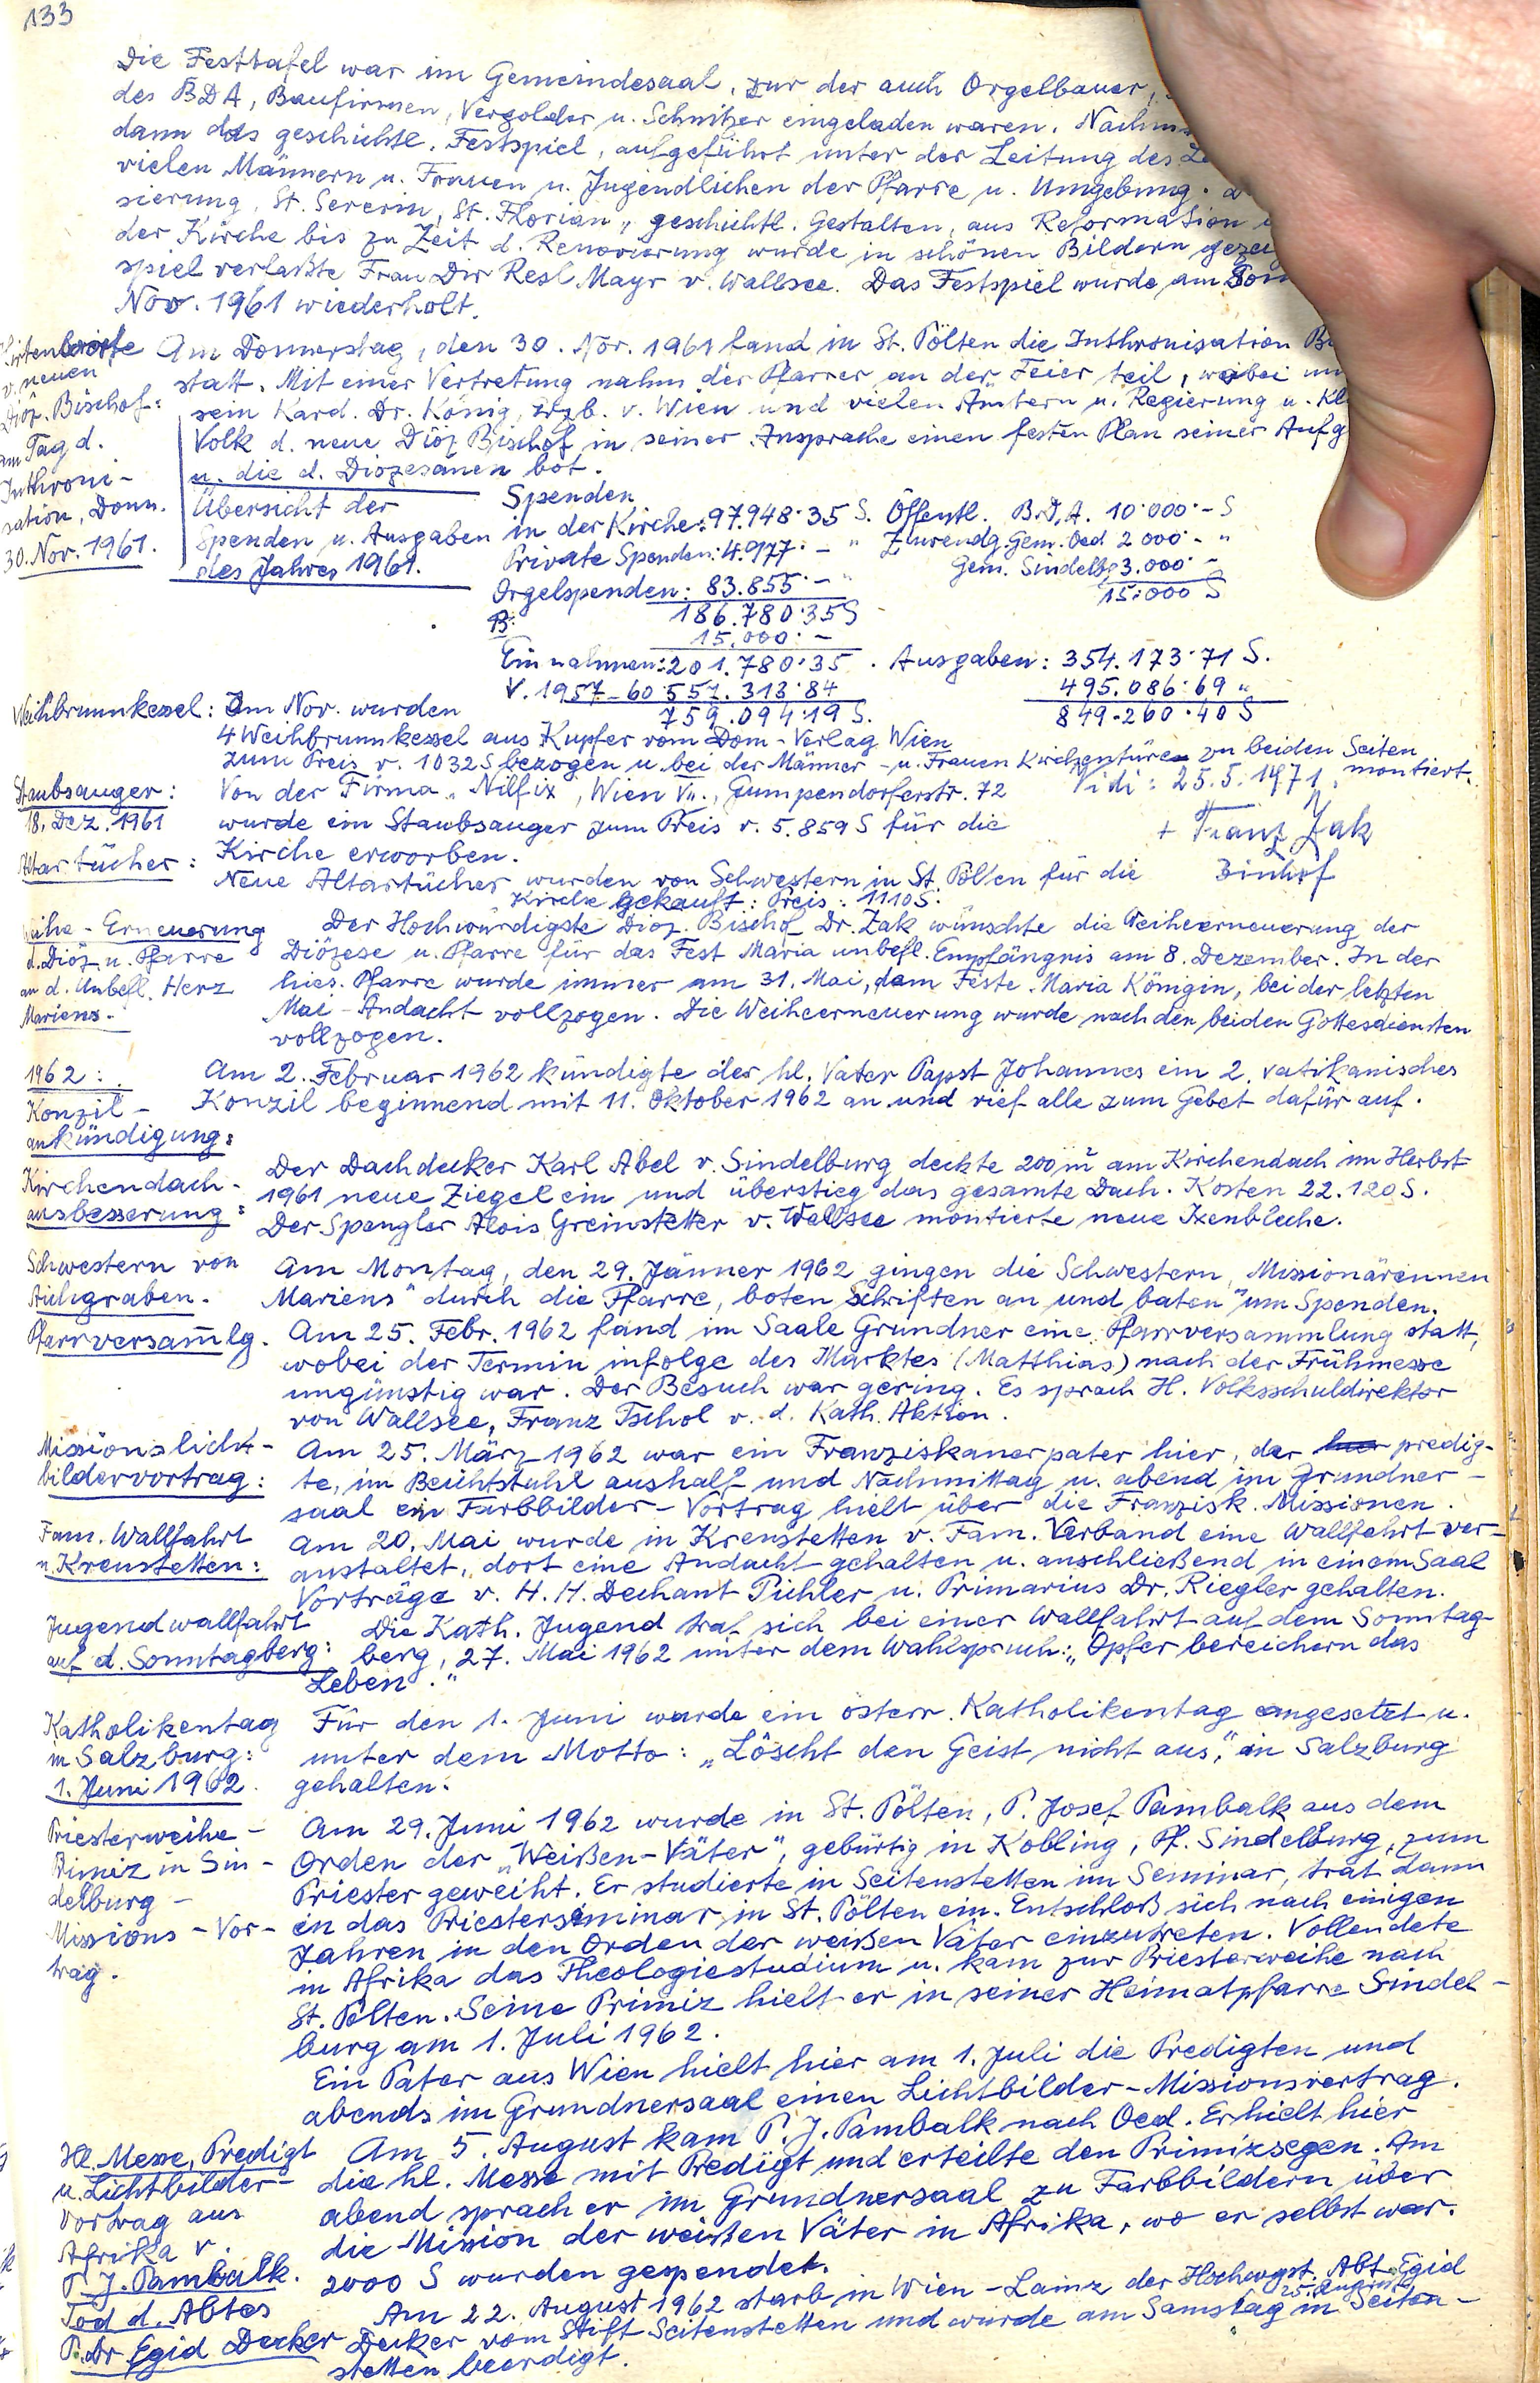 133
Die Festtafel war im Gemeindesaal, zur der auch Orgelbauer,
des BDA, Baufirmen, Vergolder u. Schnitzer eingeladen waren. Nachm
dann das geschichtl. Festspiel, aufgeführt unter der Leitung des Le
vielen Männern u. Frauen u. Jugendlichen der Pfarre u. Umgebung.
sierung, St. Severin, St. Florian, geschichtl. Gestalten, aus Reformation
der Kirche bis zu Zeit d. Renovierung wurde in schönen Bildern gezeig
spiel verfaßte Frau Dir Resl Mayr v. Wallsee. Das Festspiel wurde am Son
Nov. 1961 wiederholt.
Hirtenworte
v. neuen
Diöz. Bischof:
am Tag d.
Inthroni-
sation, Donn.
30. Nov. 1961.
Am Donnerstag, den 30. Nov. 1961 fand in St. Pölten die Inthronisation
statt. Mit einer Vertretung nahm der Pfarrer an der Feier teil, wobei
sein Kard. Dr. König, Erzb. v. Wien und vielen Ämtern u. Regierung u. Kl
Volk d. neue Diöz Bischof in seiner Ansprache einen festen Plan seiner Aufg
u. die d. Diözesanen bot.
Übersicht der
Spenden u. Ausgaben
des Jahres 1961.
Spenden
in der Kirche: 97.948.35 S.
Private Spenden: 4.977.- "
Orgelspenden: 83.855.- "
186.780.35 S
15.000.-
Einnahmen: 201.780.35.
V. 1957-60 557.313.84
759.094.19 S.
Öffentl. B.D.A. 10.000.- S
Zuwendg. Gem. Oed 2000.- "
Gem. Sindelbg 3.000.-
15.000 S
Ausgaben: 354.173.71 S.
495.086.69 "
849.260.40 S
Weihbrunnkessel: Im Nov. wurden
4 Weihbrunnkessel aus Kupfer vom Dom-Verlag Wien
zum Preis v. 1032 S bezogen u. bei der Männer- u. Frauen Kirchentüren zu beiden Seiten
montiert.
Staubsauger:
18. Dez. 1961
Von der Firma "Nilfix", Wien VII., Gumpendorferstr. 72
wurde ein Staubsauger zum Preis v. 5.859 S für die
Kirche erworben.
Vidi: 25.5.1971
+ Franz Zak
Bischof
Altartücher:
Neue Altartücher wurden von Schwestern in St. Pölten für die
Kirche gekauft: Preis: 1110 S.
Weihe-Erneuerung
d. Diöz. u. Pfarre
an d. Unbefl. Herz
Mariens.
Der Hochwürdigste Diöz. Bischof Dr. Zak wünschte die Weiheerneuerung der
Diözese u. Pfarre für das Fest Maria unbefl. Empfängnis am 8. Dezember. In der
hies. Pfarre wurde immer am 31. Mai, dem Feste Maria Königin, bei der letzten
Mai-Andacht vollzogen. Die Weiheerneuerung wurde nach den beiden Gottesdiensten
vollzogen.
1962:
Konzil-
ankündigung:
Am 2. Februar 1962 kündigte der hl. Vater Papst Johannes ein 2. vatikanisches
Konzil beginnend mit 11. Oktober 1962 an und rief alle zum Gebet dafür auf.
Kirchendach-
ausbesserung:
Der Dachdecker Karl Abel v. Sindelburg deckte 200 m² am Kirchendach im Herbst
1961 neue Ziegel ein und überstieg das gesamte Dach. Kosten 22.120 S.
Der Spengler Alois Greinstetter v. Wallsee montierte neue Ixenbleche.
Schwestern von
Aichgraben.
Am Montag, den 29. Jänner 1962 gingen die Schwestern „Missionärinnen
Mariens" durch die Pfarre, boten Schriften an und baten um Spenden.
Pfarrversam̄lg.
Am 25. Febr. 1962 fand im Saale Grundner eine Pfarrversammlung statt,
wobei der Termin infolge des Marktes (Matthias) nach der Frühmesse
ungünstig war. Der Besuch war gering. Es sprach H. Volksschuldirektor
von Wallsee, Franz Tschol v. d. Kath. Aktion.
Missionslicht-
bildervortrag:
Am 25. März 1962 war ein Franziskanerpater hier, der predig-
te, im Beichtstuhl aushalf und Nachmittag u. abend im Grundner-
saal ein Farbbilder-Vortrag hielt über die Franzisk. Missionen.
Fam. Wallfahrt
n. Krenstetten:
Am 20. Mai wurde in Krenstetten v. Fam. Verband eine Wallfahrt ver-
anstaltet, dort eine Andacht gehalten u. anschließend in einem Saal
Vorträge v. H. H. Dechant Pichler u. Primarius Dr. Riegler gehalten.
Jugendwallfahrt
auf d. Sonntagberg:
Die Kath. Jugend traf sich bei einer Wallfahrt auf dem Sonntag-
berg, 27. Mai 1962 unter dem Wahlspruch: „Opfer bereichern das
Leben."
Katholikentag
in Salzburg:
1. Juni 1962.
Für den 1. Juni wurde ein österr. Katholikentag angesetzt u.
unter dem Motto: „Löscht den Geist nicht aus", in Salzburg
gehalten.
Priesterweihe-
Primiz in Sin-
delburg-
Missions-Vor-
trag.
Am 29. Juni 1962 wurde in St. Pölten, P. Josef Pambalk aus dem
Orden der „Weißen-Väter", gebürtig in Kobling, Pf. Sindelburg, zum
Priester geweiht. Er studierte in Seitenstetten im Seminar, trat dann
in das Priesterseminar in St. Pölten ein. Entschloß sich nach einigen
Jahren in den Orden der weißen Väter einzutreten. Vollendete
in Afrika das Theologiestudium u. kam zur Priesterweihe nach
St. Pölten. Seine Primiz hielt er in seiner Heimatpfarre Sindel-
burg am 1. Juli 1962.
Ein Pater aus Wien hielt hier am 1. Juli die Predigten und
abends im Grundnersaal einen Lichtbilder-Missionsvortrag.
Hl. Messe, Predigt
u. Lichtbilder-
Vortrag aus
Afrika v.
P. J. Pambalk.
Am 5. August kam P. J. Pambalk nach Oed. Er hielt hier
die hl. Messe mit Predigt und erteilte den Primizsegen. Am
abend sprach er im Grundnersaal zu Farbbildern über
die Mission der weißen Väter in Afrika, wo er selbst war.
2000 S wurden gespendet.
Tod d. Abtes
P. Dr Egid Decker
Am 22. August 1962 starb in Wien-Lainz der Hochwgst. Abt Egid
Decker vom Stift Seitenstetten und wurde am Samstag 25. August in Seiten-
stetten beerdigt.